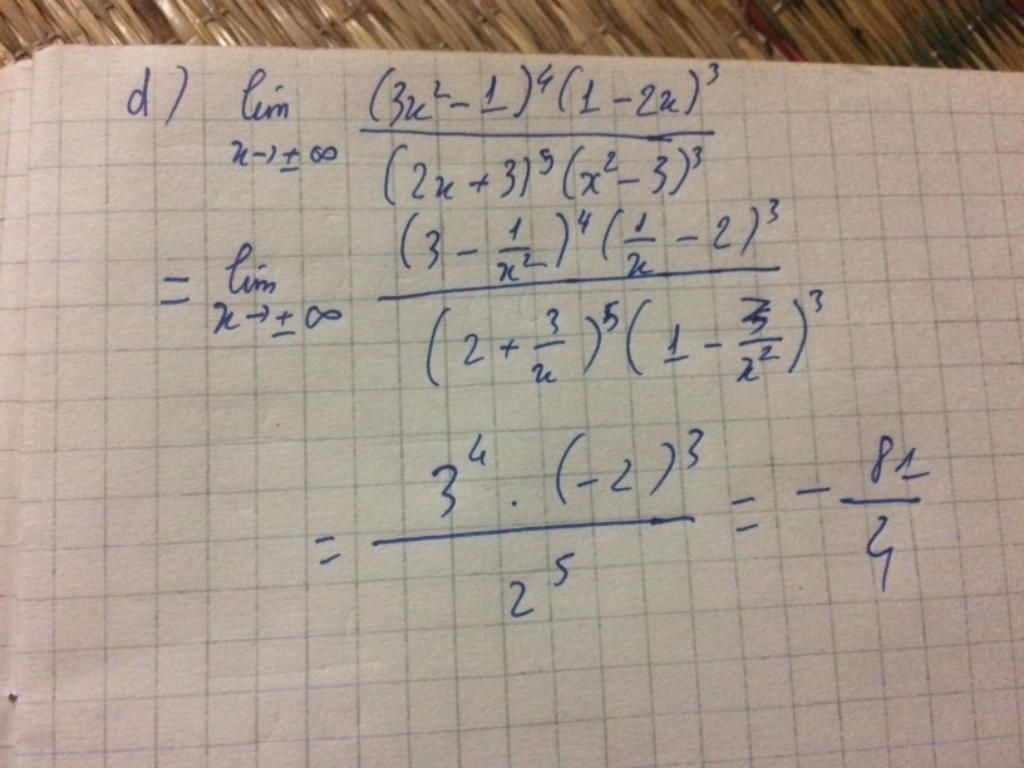 d) lim x→±∞ (3x² - 1)⁴(1 - 2x)³ / (2x + 3)⁵(x² - 3)³
= lim x→±∞ (3 - 1/x²)⁴(1/x - 2)³ / (2 + 3/x)⁵(1 - 3/x²)³
= 3⁴ . (-2)³ / 2⁵ = - 81/4